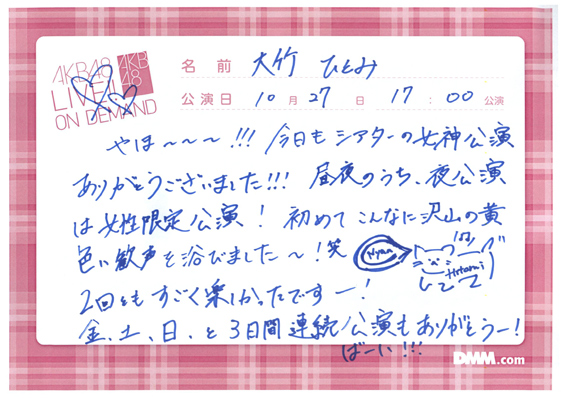 AKB48
LIVE!!
ON DEMAND
AKB
48
名前 大竹 ひとみ
公演日 10月27日 17:00公演
やほ〜〜〜!!! 今日もシアターの女神公演
ありがとうございました!!! 昼夜のうち、夜公演
は女性限定公演! 初めてこんなに沢山の黄
色い歓声を浴びました〜!笑
Nyan
Hitomi
2回ともすごく楽しかったですー!
金、土、日、と3日間連続公演もありがとうー!
ばーい!!!
DMM.com